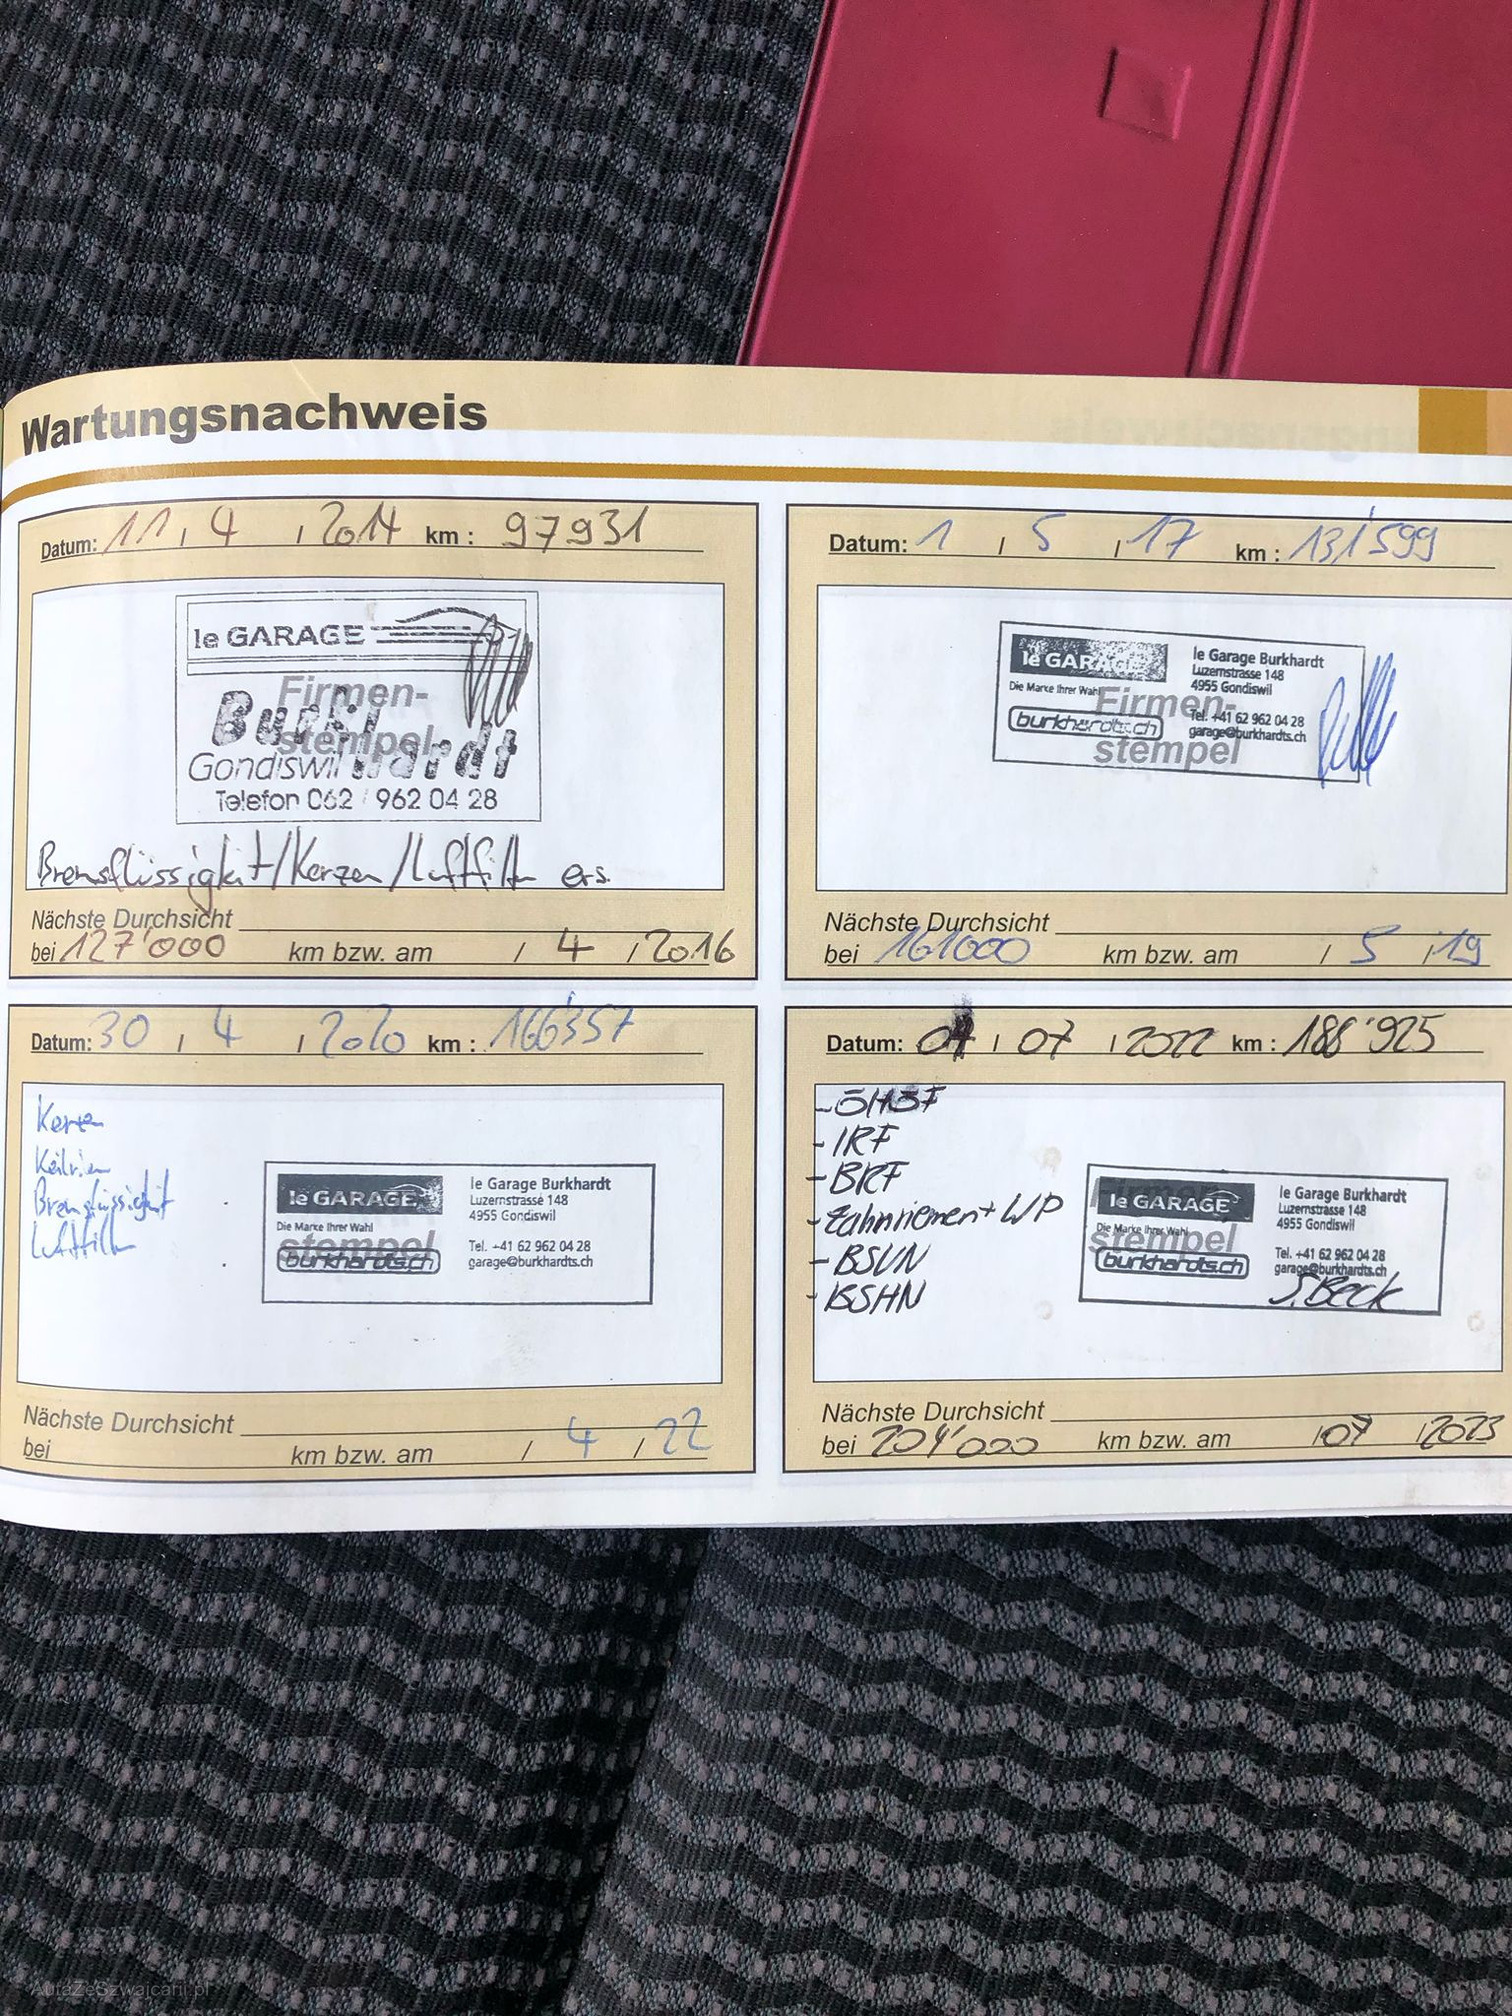 Wartungsnachweis
Datum: 11 / 4 / 2014 km : 97931
le GARAGE
Firmen-
stempel
Burkhardt
Gondiswil
Telefon 062 / 962 04 28
Bremsflüssigkeit/Kerzen/Luftfilter ers.
Nächste Durchsicht
bei 127'000 km bzw. am / 4 / 2016
Datum: 1 / 5 / 17 km : 131'599
le GARAGE
Die Marke Ihrer Wahl
burkhardts.ch
le Garage Burkhardt
Luzernstrasse 148
4955 Gondiswil
Tel. +41 62 962 04 28
garage@burkhardts.ch
Firmen-
stempel
Nächste Durchsicht
bei 161000 km bzw. am / 5 / 19
Datum: 30 / 4 / 2020 km : 166'357
Kerzen
Keilriemen
Bremsflüssigkeit
Luftfilter
le GARAGE
Die Marke Ihrer Wahl
stempel
burkhardts.ch
le Garage Burkhardt
Luzernstrasse 148
4955 Gondiswil
Tel. +41 62 962 04 28
garage@burkhardts.ch
Nächste Durchsicht
bei km bzw. am / 4 / 22
Datum: 04 / 07 / 2022 km : 188'925
- IRF
- BRF
- Zahnriemen + WP
- BSVN
- BSHN
le GARAGE
Die Marke Ihrer Wahl
stempel
burkhardts.ch
le Garage Burkhardt
Luzernstrasse 148
4955 Gondiswil
Tel. +41 62 962 04 28
garage@burkhardts.ch
S.Beck
Nächste Durchsicht
bei 204'000 km bzw. am / 07 / 2023
AutaZeSzwajcarii.pl